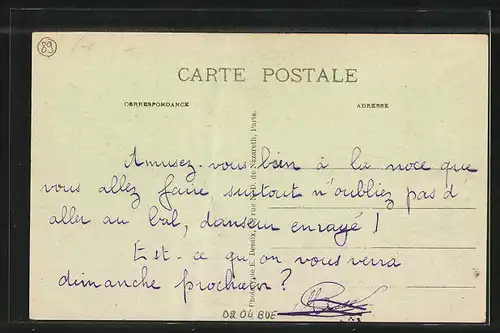 89
CARTE POSTALE
CORRESPONDANCE
ADRESSE
Amusez-vous bien à la noce que
vous allez faire, surtout n'oubliez pas d'
aller au bal, danseur enragé !
Est-ce qu'on vous verra
dimanche prochain ?
E. Dessix, rue N. de Nazareth, Paris.
08 04 BUE